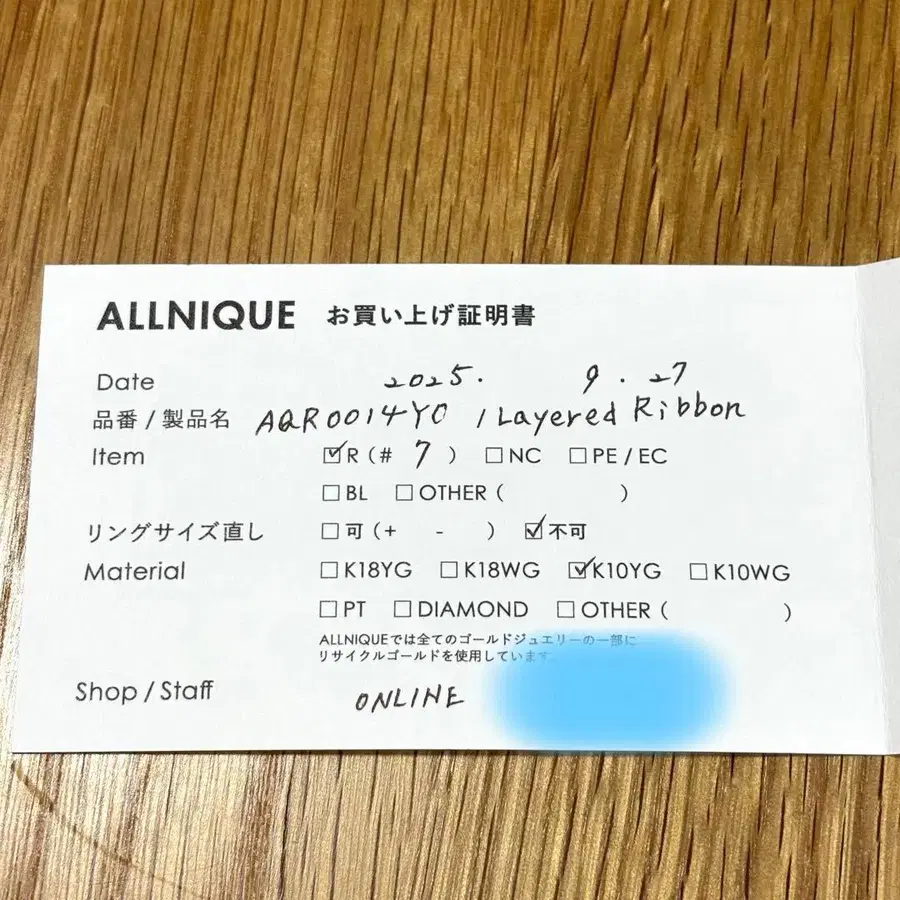 ALLNIQUE お買い上げ証明書
Date 2025. 9. 27
品番 / 製品名 AQR0014YO / Layered Ribbon
Item ☑R (# 7 ) ☐NC ☐PE / EC
☐BL ☐OTHER ( )
リングサイズ直し ☐可 (+ - ) ☑不可
Material ☐K18YG ☐K18WG ☑K10YG ☐K10WG
☐PT ☐DIAMOND ☐OTHER ( )
ALLNIQUEでは全てのゴールドジュエリーの一部に
リサイクルゴールドを使用しています
Shop / Staff ONLINE